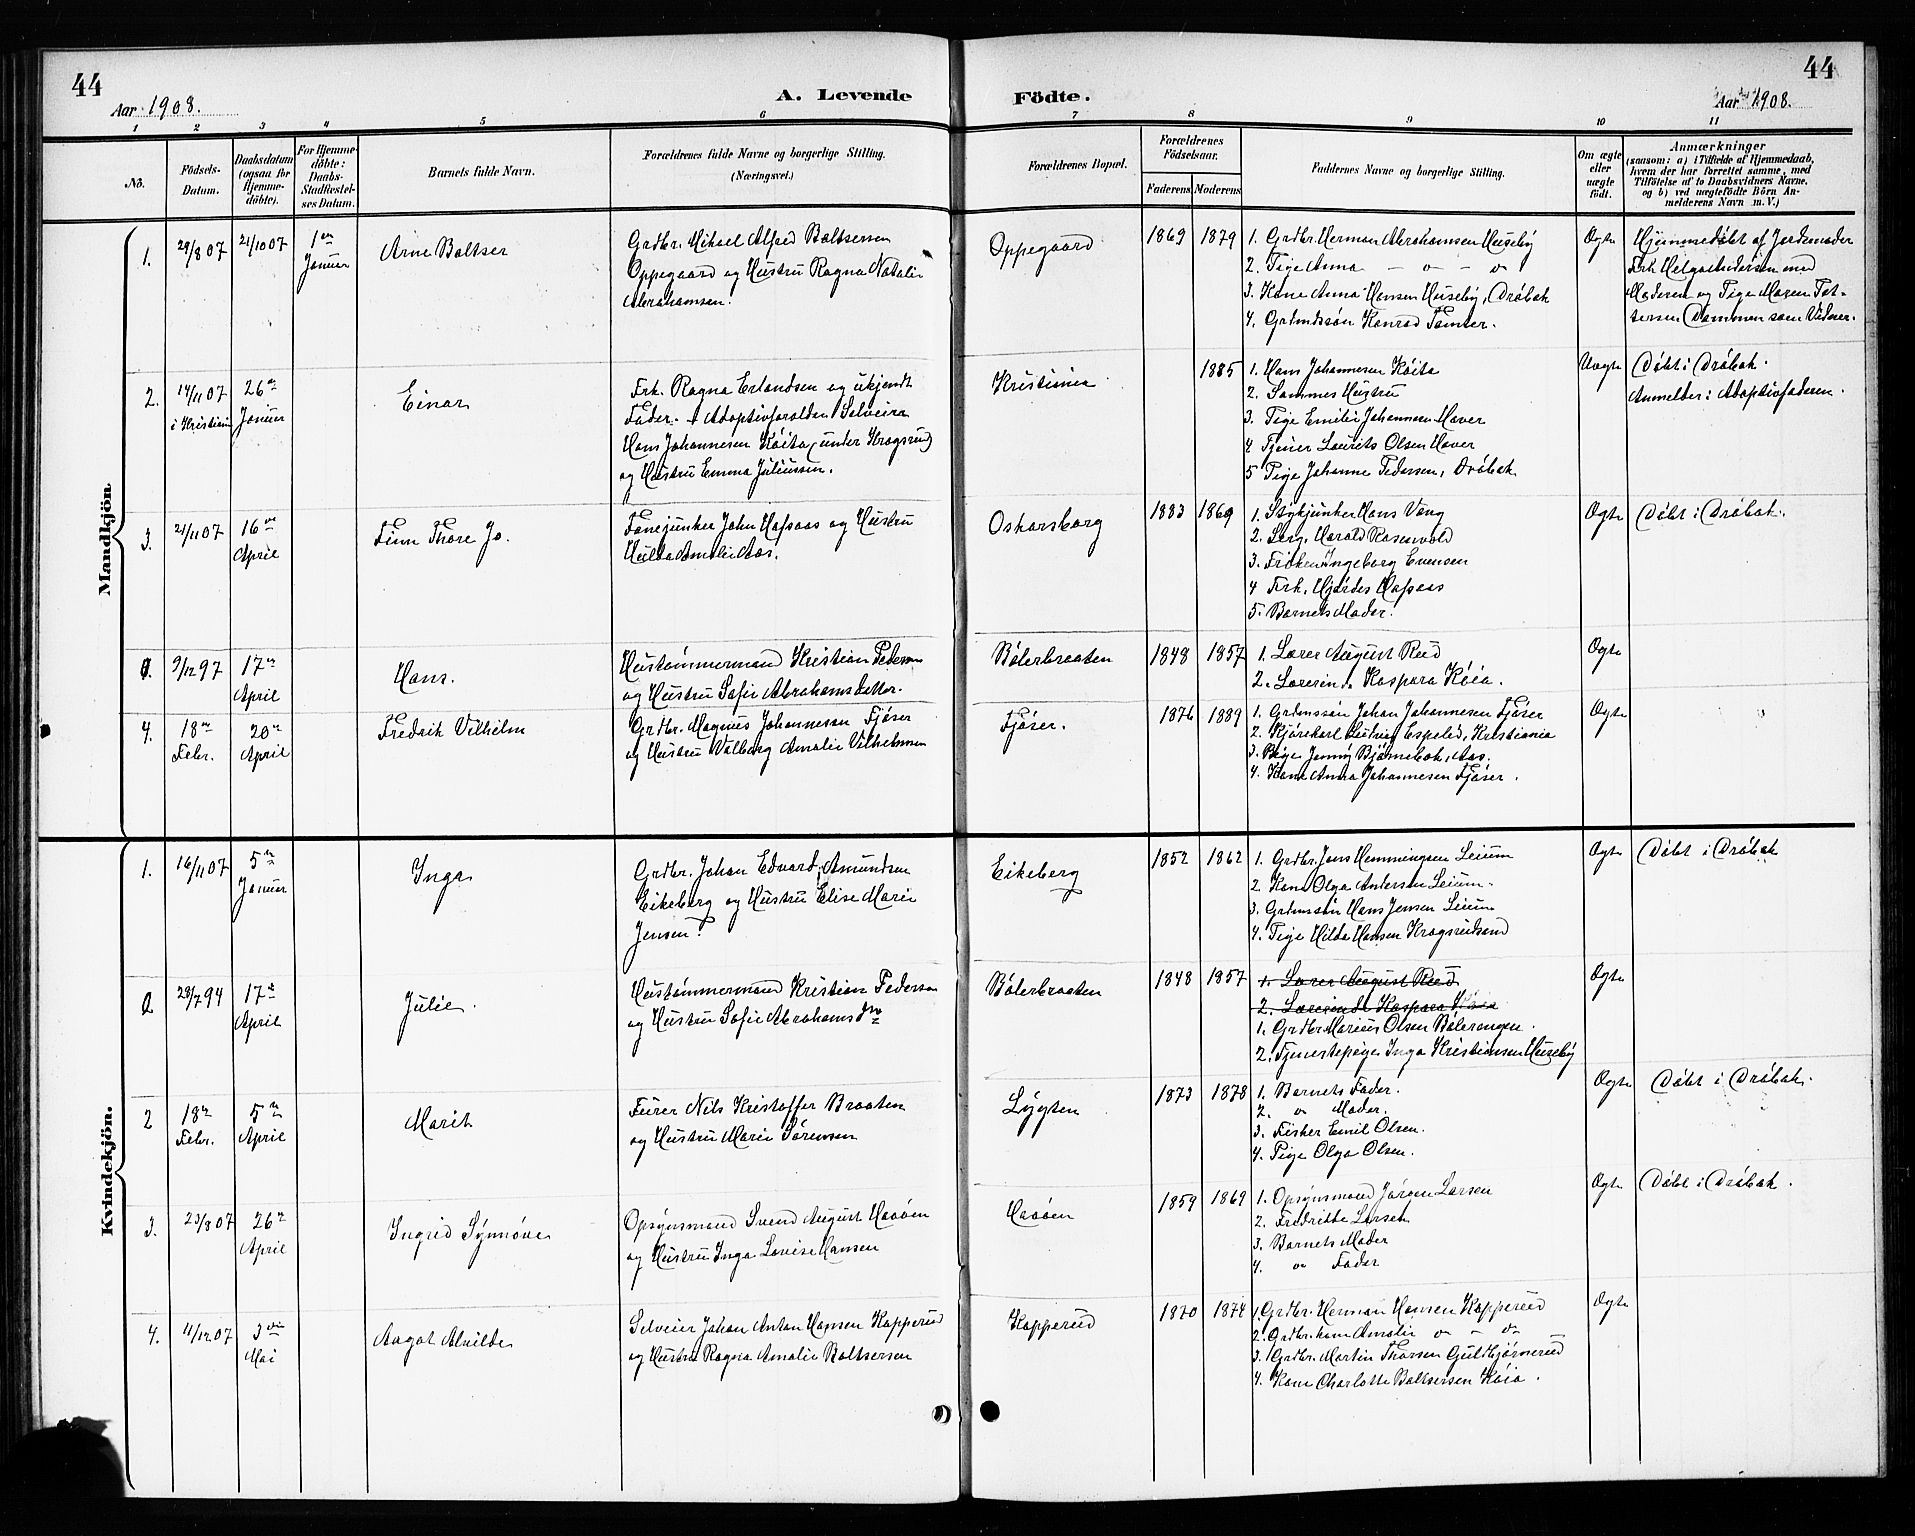 44
Aar 1908.
A. Levende
Födte.
44
Aar 1908.
1 2 3 4 5 6 7 8 9 10 11
No.
Födsels-Datum.
Daabsdatum (ogsaa for Hjemme-döbte).
For Hjemme-döbte: Daabs-Stadfæstel-ses Datum.
Barnets fulde Navn.
Forældrenes fulde Navne og borgerlige Stilling.
(Næringsvei.)
Forældrenes Bopæl.
Forældrenes Födselsaar.
Faderens Moderens
Faddernes Navne og borgerlige Stilling.
Om ægte eller uægte födt.
Anmærkninger
(saasom: a) i Tilfælde af Hjemmedaab,
hvem der har forrettet samme, med
Tilföielse af to Daabsvidners Navne,
og b) ved uægtefödte Börn An-
melderens Navn m. V.)
Mandkjön
1. 29/8 07 21/10 07 1en Januar Arne Baltser
Grdbr. Mikael Alfred Baltsersen
Oppegaard og Hustru Ragna Natalie
Abrahamsen.
Oppegaard 1869 1879
1. Grdbr. Herman Abrahamsen Huseby
2. Pige Anna — o — o
3. Kone Anna Hansen Huseby, Dröbak
4. Grdmdssön Konrad Tomter.
Ægte
Hjemmedöbt af Jordemoder
Frk Helga Pedersen med
Moderen og Pige Maren Pet-
tersen Dammen som Vidner.
2. 14/11 07 i Kristiania 26de Januar Einar
Frk. Ragna Erlandsen og ukjendt
Fader. + Adoptivforældre: Selveier
Hans Johannesen Köita (under Krogsrud)
og Hustru Emma Juliussen.
Kristiania 1885
1. Hans Johannesen Köita
2. Sammes Hustru
3. Pige Emilie Johannesen Haver
4 Tjener Laurits Olsen Haver
5 Pige Johanne Pedersen, Dröbak
Uægte
Döbt i Dröbak.
Anmelder: Adoptivfaderen.
3. 21/11 07 16de April Finn Thore Jo.
Fanejunker John Hafsaas og Hustru
Hilda Amalie Aas.
Oskarsborg 1883 1869
1. Stykjunker Hans Vang
2. Serg. Harald Rosenvold
3. Fröken Ingeborg Evensen
4 Frk. Hjördes Hafsaas
5. Barnets Moder.
Ægte
Döbt i Dröbak.
0. 9/12 97 17de April Hans.
Hustömmermand Kristian Pedersen
og Hustru Sofie Abrahamsdatter.
Bölerbraaten 1848 1857
1. Lærer August Rud
2. Lærerinde Kaspara Köia.
Ægte
4. 18de Febr. 20de April Fredrik Vilhelm
Grdbr. Magnus Johannesen Fjöser
og Hustru Valborg Amalie Vilhelmsen
Fjöser. 1876 1889
1. Grdmssön Johan Johannesen Fjöser
2. Kjörekarl Ludvig Espelid, Kristiania
3. Pige Jenny Bjørnebek, Aas.
4. Kone Anna Johannesen Fjöser.
Ægte
Kvindekjön.
1. 16/11 07 5te Januar Inga
Grdbr. Johan Edvard Amundsen
Eikeberg og Hustru Elise Marie
Jensen.
Eikeberg 1852 1862
1. Grdbr. Jens Hemmingsen Leium
2. Kone Olga Andersen Leium.
3. Grdmssön Hans Jensen Leium
4. Pige Hilda Hansen Krogsrudsand
Ægte
Döbt i Dröbak
0. 29/7 94 17de April Julie.
Hustömmermand Kristian Pedersen
og Hustru Sofie Abrahamsdtr
Bölerbraaten 1848 1857
1. Lærer August Rud
2. Lærerinde Kaspara Köia
1. Grdbr. Marius Olsen Bölerengen.
2. Tjenestepige Inga Kristiansen Huseby
Ægte
2 18de Febr. 5te April Marit
Furer Nils Kristoffer Braaten
og Hustru Marie Sörensen
Lygten 1873 1878
1. Barnets Fader.
2. " Moder.
3. Fisker Emil Olsen.
4. Pige Olga Olsen.
Ægte
Döbt i Dröbak.
3. 23/8 07 26de April Ingrid Synnöve
Opsynsmand Svend August Haaöen
og Hustru Inga Lovise Hansen
Haaöen 1859 1869
1. Opsynsmand Jörgen Larsen
2. Fredrikke Larsen
3. Barnets Moder
4. " Fader
Ægte
Döbt i Dröbak.
4. 11/12 07 3die Mai Aagot Alvilde
Selveier Johan Anton Hansen Kopperud
og Hustru Ragna Amalie Baltsersen
Kopperud 1870 1874
1. Grdbr. Herman Hansen Kopperud
2. Grdbr. kone Amalie o — o
3. Grdbr. Martin Thorsen Guldbjørnerud
4. Kone Charlotte Baltsersen Köia.
Ægte